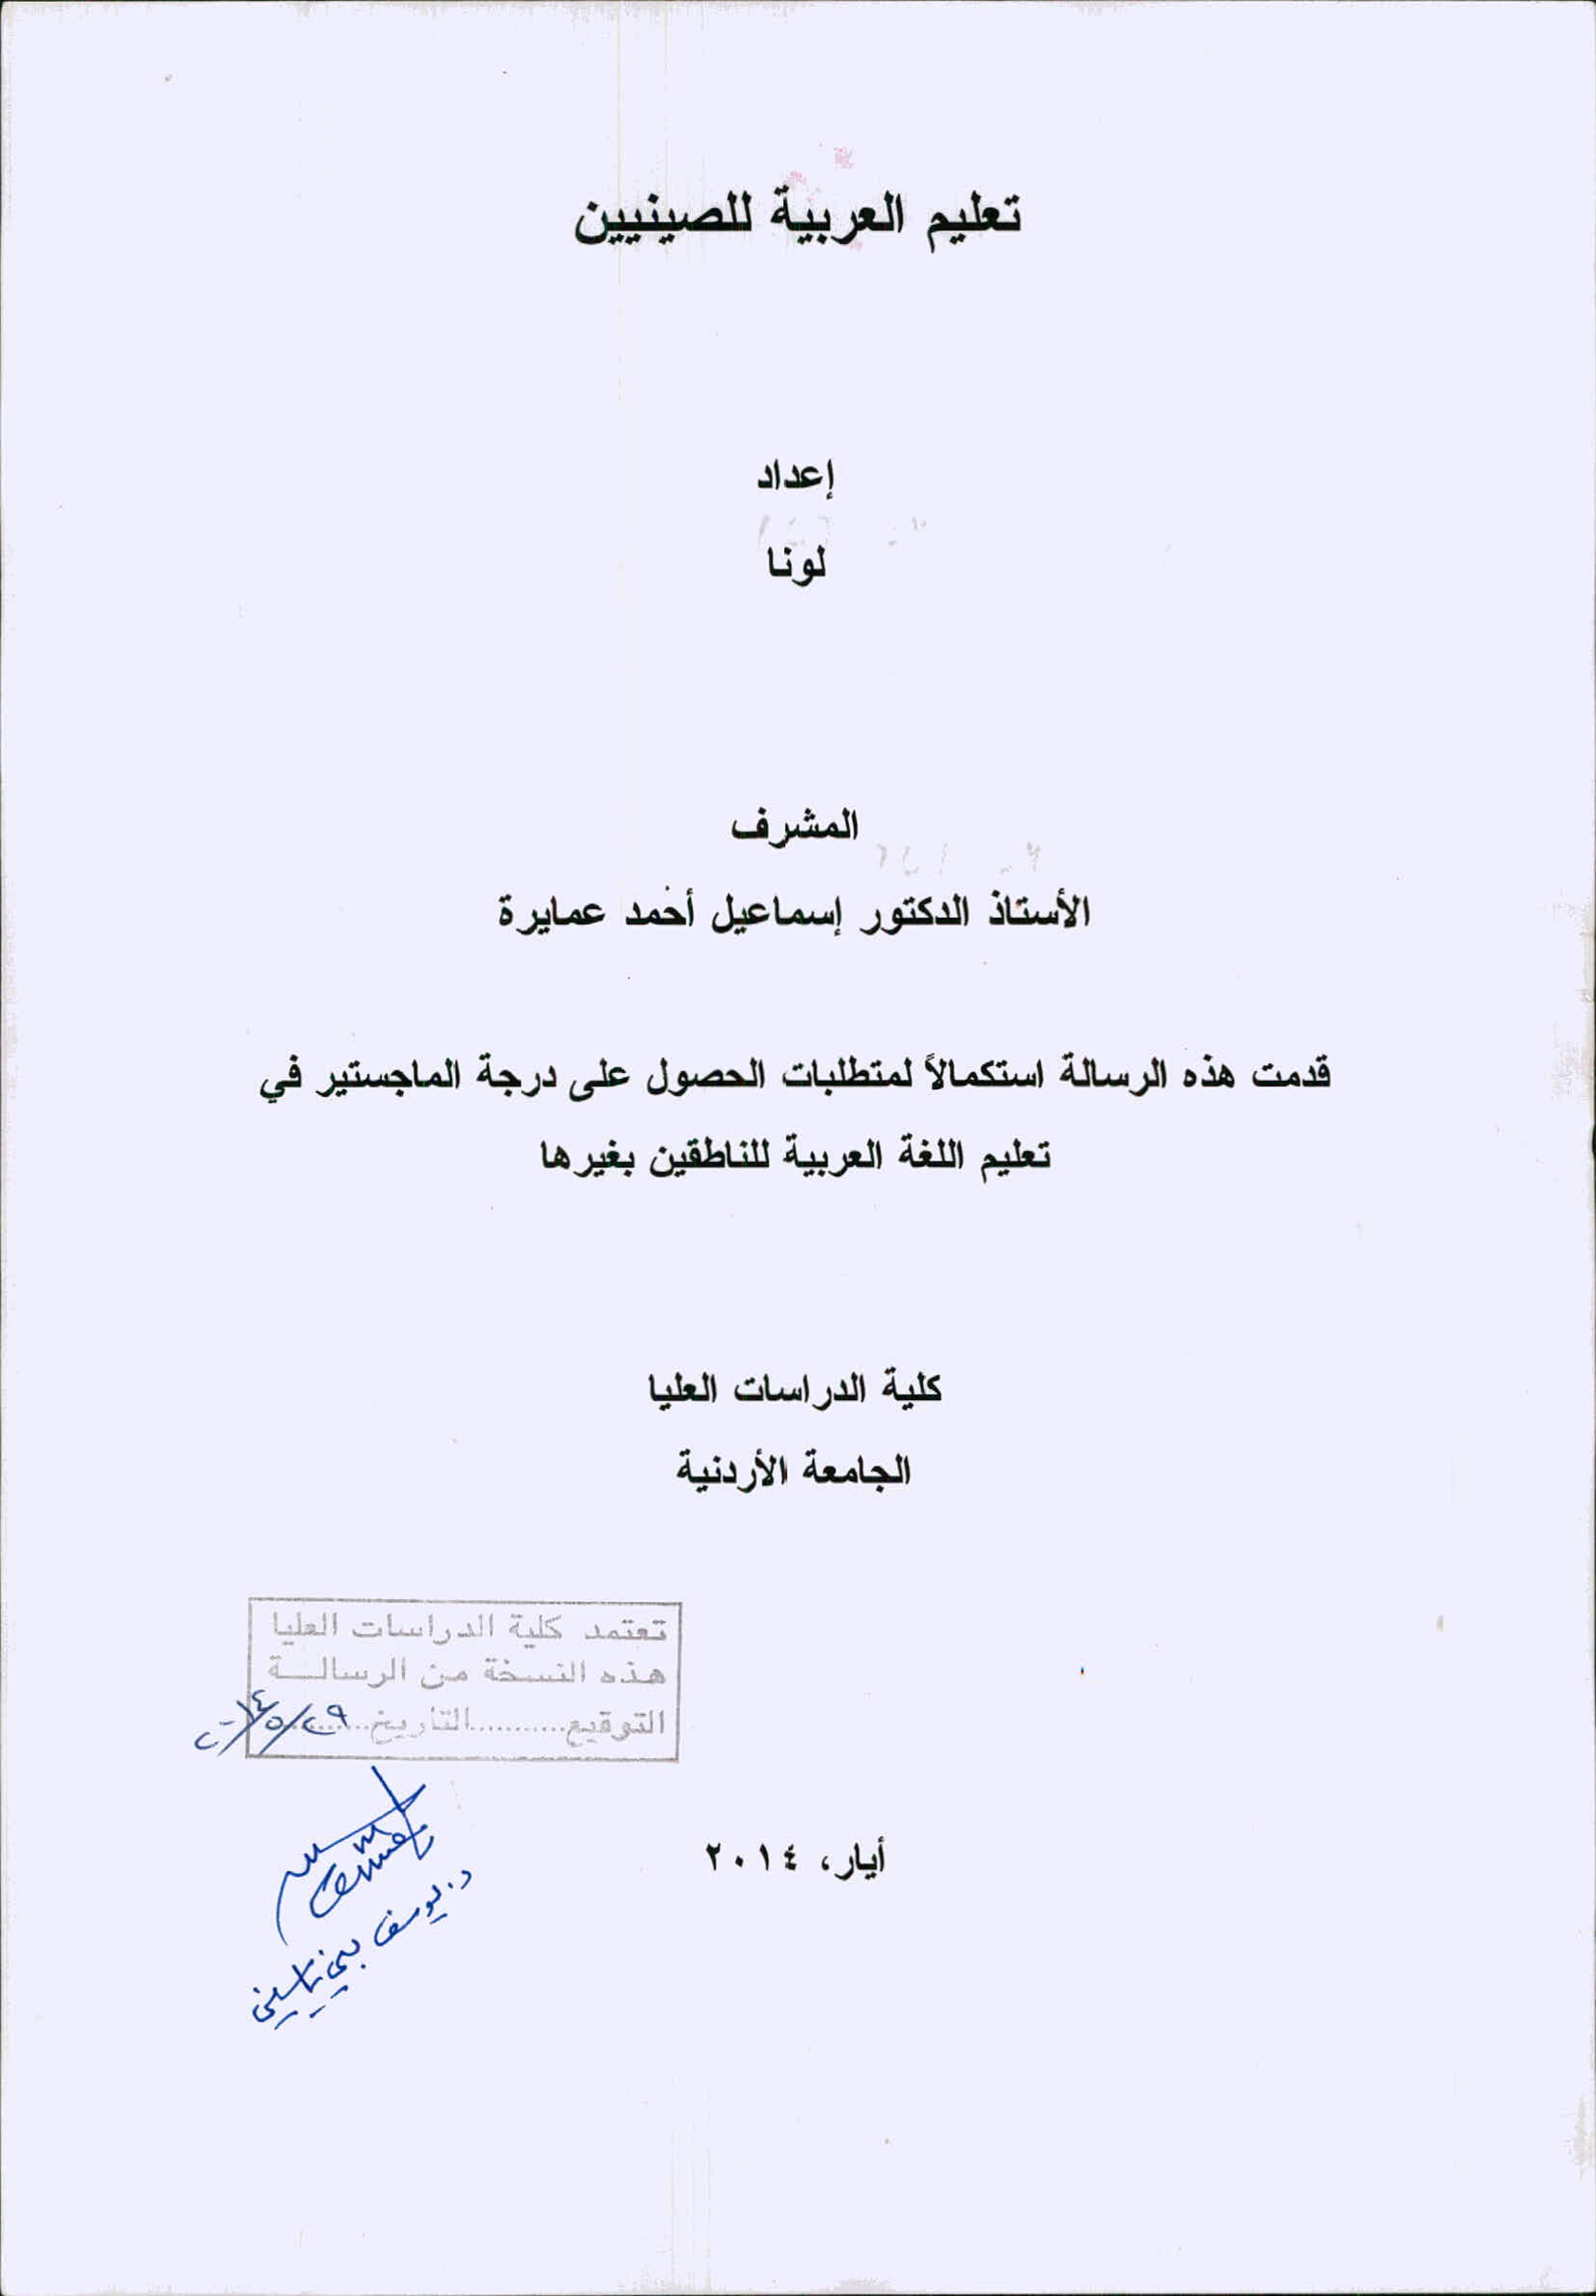 تعليم العربية للصينيين
إعداد
لونا
المشرف
الأستاذ الدكتور إسماعيل أحمد عمايرة
قدمت هذه الرسالة استكمالاً لمتطلبات الحصول على درجة الماجستير في
تعليم اللغة العربية للناطقين بغيرها
كلية الدراسات العليا
الجامعة الأردنية
تعتمد كلية الدراسات العليا
هذه النسخة من الرسالــة
التوقيع............التاريخ.......... ٢٩/٥/٢٠١٤
أيار، ٢٠١٤
د. يوسف بني ياسين